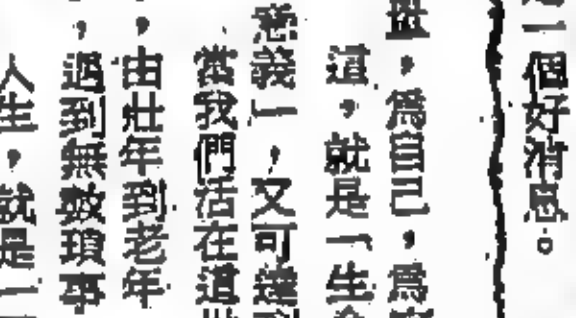 一個好消息。
，為自己，為
這，就是「生
意義」，又可達到
當我們活在這世
，由壯年到老年
，遇到無數瑣事
人生，就是一